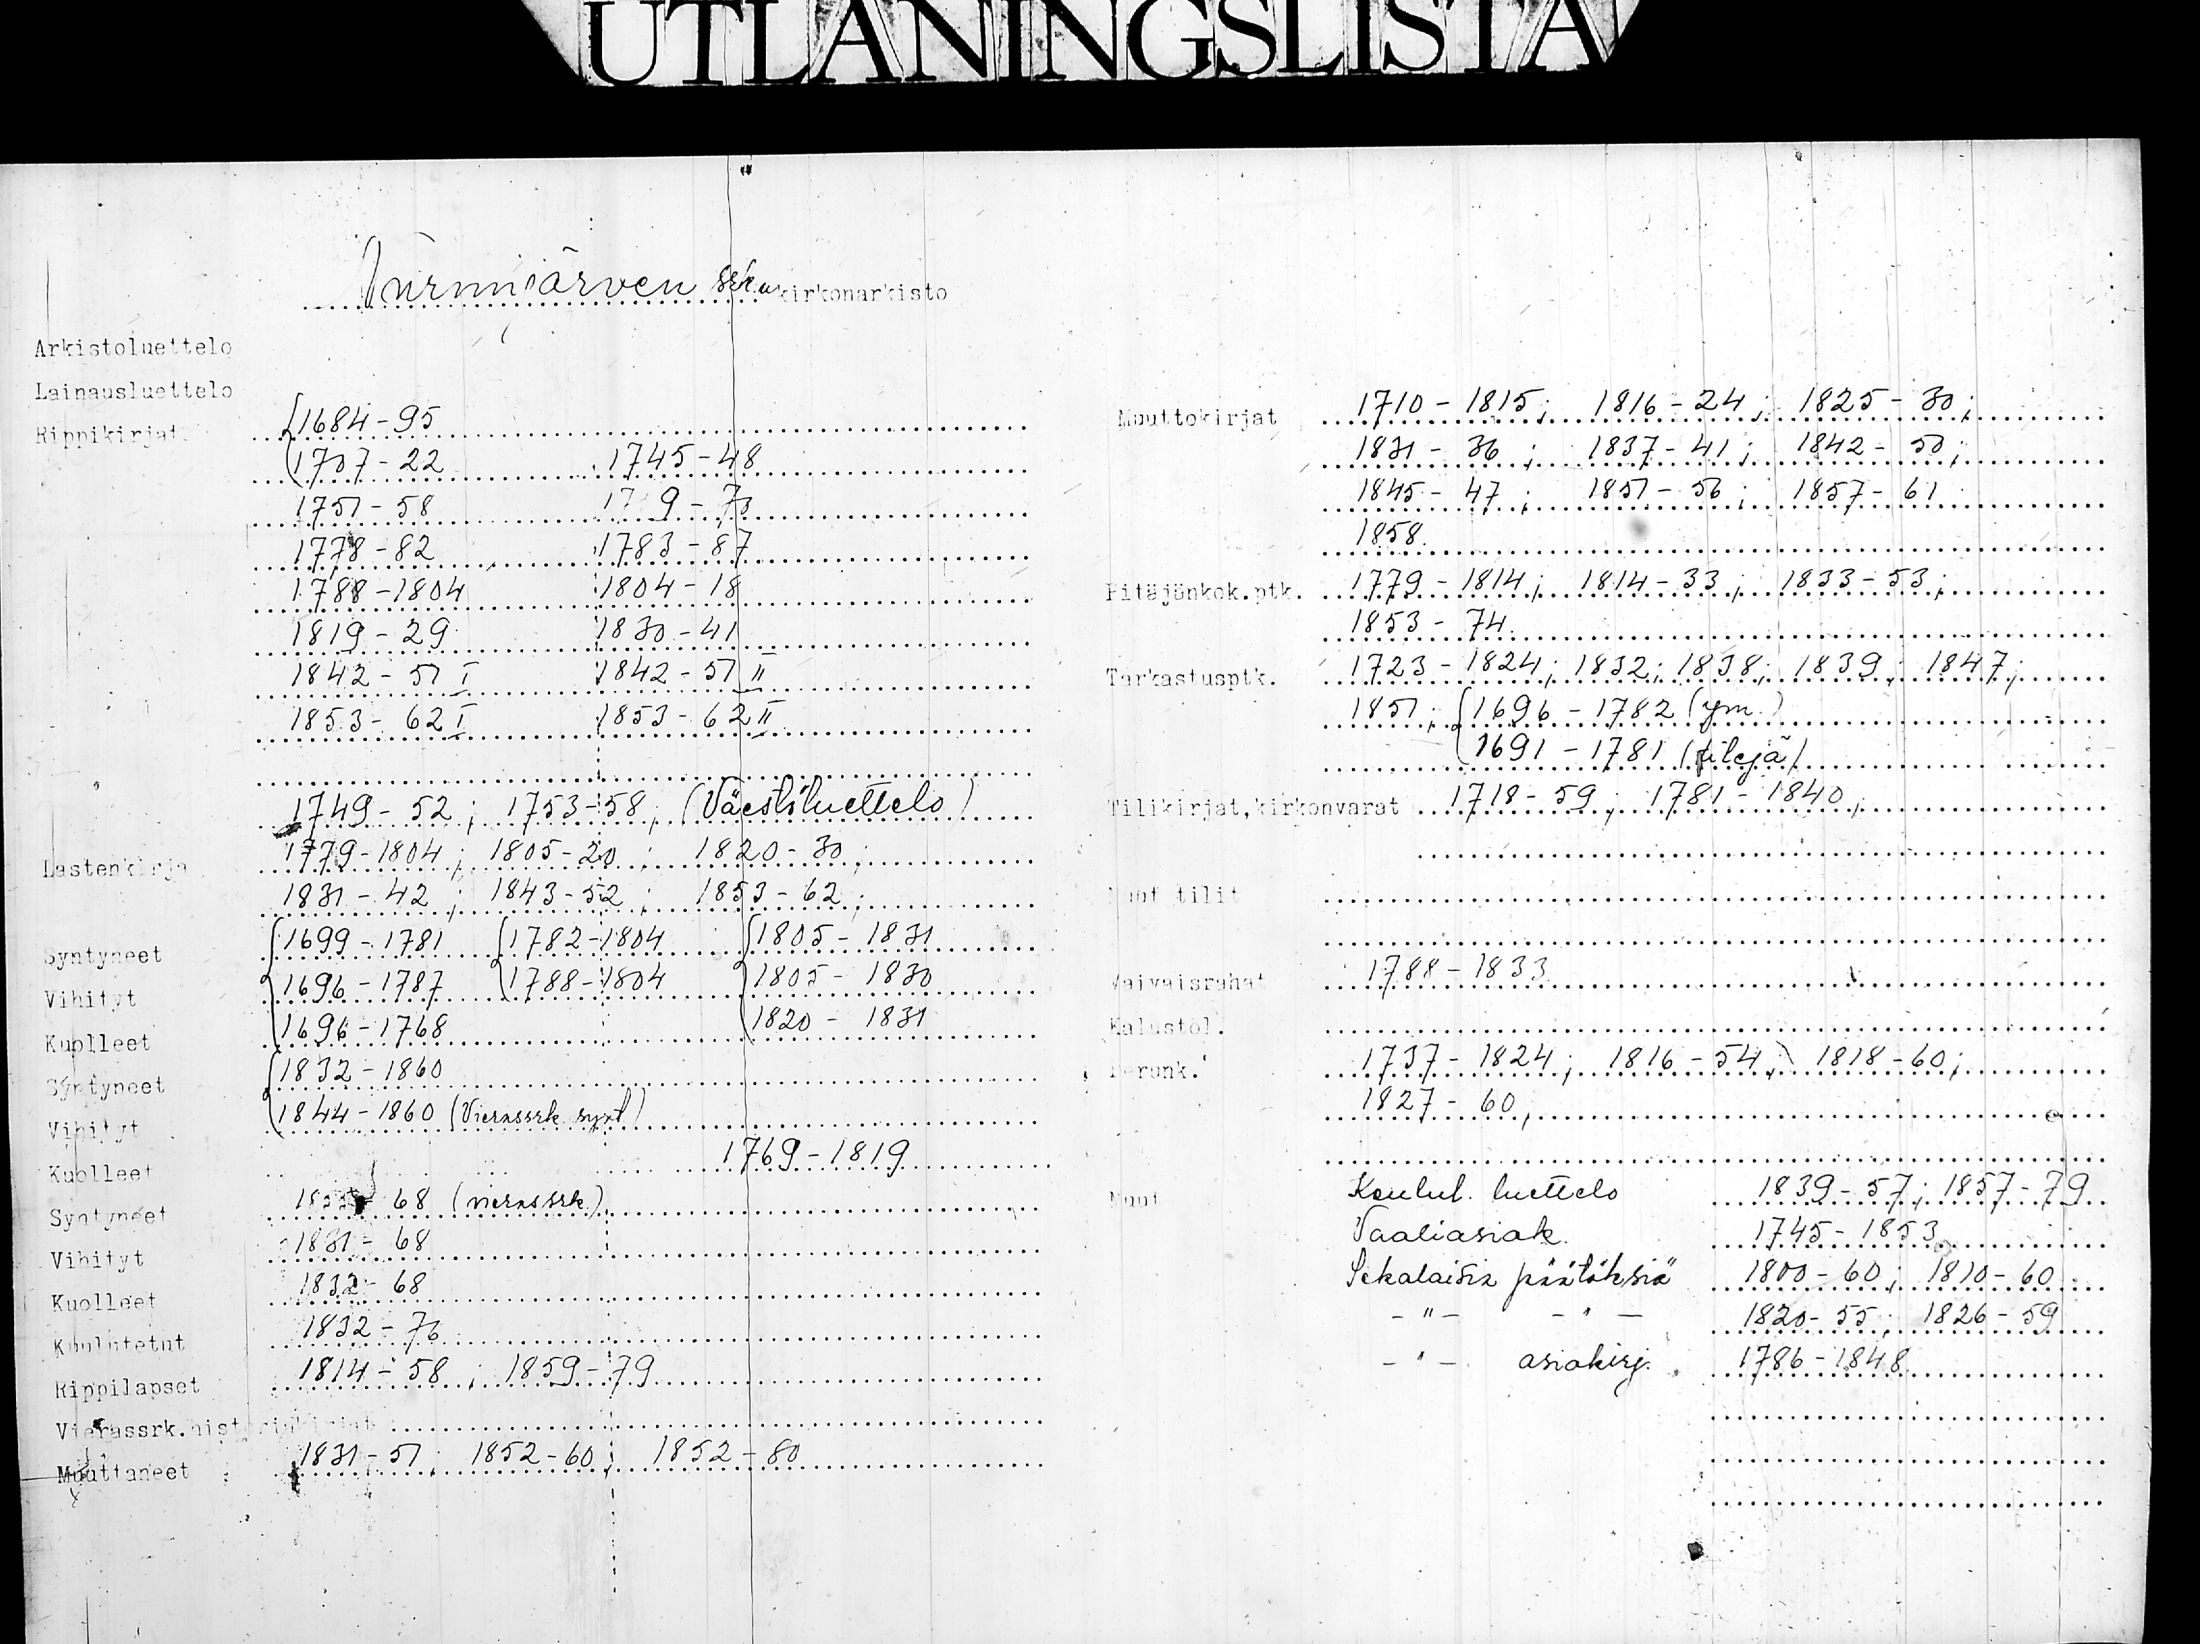 UTLÅNINGSLISTA
Nurmijärven srkn kirkonarkisto
Arkistoluettelo
Lainausluettelo
Rippikirjat 1684-95
1707-22 1745-48
1751-58 1759-73
1778-82 1783-87
1788-1804 1804-18
1819-29 1830-41
1842-51 I 1842-51 II
1853-62 I 1853-62 II
1749-52; 1753-58; (Väestöluettelo)
Lastenkirja 1779-1804; 1805-20; 1820-30;
1831-42; 1843-52; 1853-62;
Syntyneet 1699-1781 1782-1804 1805-1831
Vihityt 1696-1787 1788-1804 1805-1830
Kuolleet 1696-1768 1820-1831
Syntyneet 1832-1860
Vihityt 1844-1860 (Vierassrk. synt)
Kuolleet 1769-1819
Syntyneet 68 (vierassrk.)
Vihityt 1831-68
Kuolleet 1832-68
Kuulutetut 1832-76
Rippilapset 1814-58; 1859-79
Vierassrk.historiakirjat
Muuttaneet 1831-51; 1852-60; 1852-80
Muuttokirjat 1710-1815; 1816-24; 1825-30;
1831-36; 1837-41; 1842-50;
1845-47; 1851-56; 1857-61
1858.
Pitäjänkok.ptk. 1779-1814; 1814-33; 1833-53;
1853-74
Tarkastusptk. 1723-1824; 1832; 1838; 1839; 1847;
1851; 1696-1782 (ym.)
1691-1781 (tilejä)
Tilikirjat,kirkonvarat 1718-59; 1781-1840;
Muut tilit
Vaivaisrahat 1788-1833
Kalustol.
Perunk. 1737-1824; 1816-54; 1818-60;
1827-60,
Muut Koulul. luettelo 1839-57; 1857-79
Vaaliasiak. 1745-1853
Sekalaisia päätöksiä 1800-60; 1810-60
-"- -"- 1820-55; 1826-59
-"- asiakirj. 1786-1848